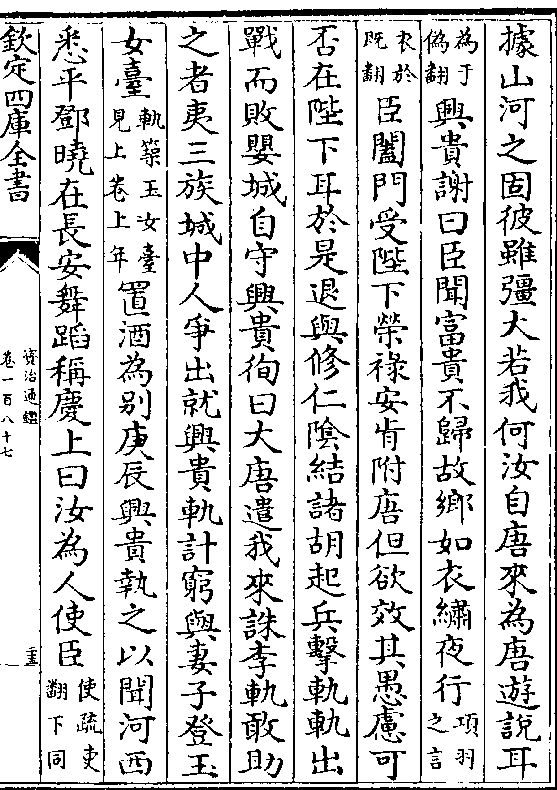 據山河之固彼雖彊大若我何汝自唐來為唐遊說耳
為于偽翻興貴謝曰臣聞富貴不歸故鄉如衣繡夜行項羽之言
衣於既翻臣闔門受陛下榮祿安肯附唐但欲效其愚慮可
否在陛下耳於是退與修仁陰結諸胡起兵擊軌軌出
戰而敗嬰城自守興貴徇曰大唐遣我來誅李軌敢助
之者夷三族城中人爭出就興貴軌計窮與妻子登玉
女臺軌築玉女臺見上卷上年置酒為别庚辰興貴執之以聞河西
悉平鄧曉在長安舞蹈稱慶上曰汝為人使臣使疏吏翻下同
欽定四庫全書
資治通鑑
卷一百八十七